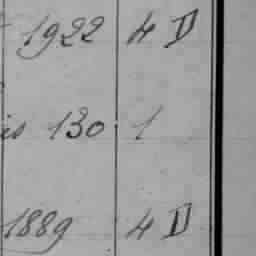 1922 4 D
is 130 1
1889 4 D